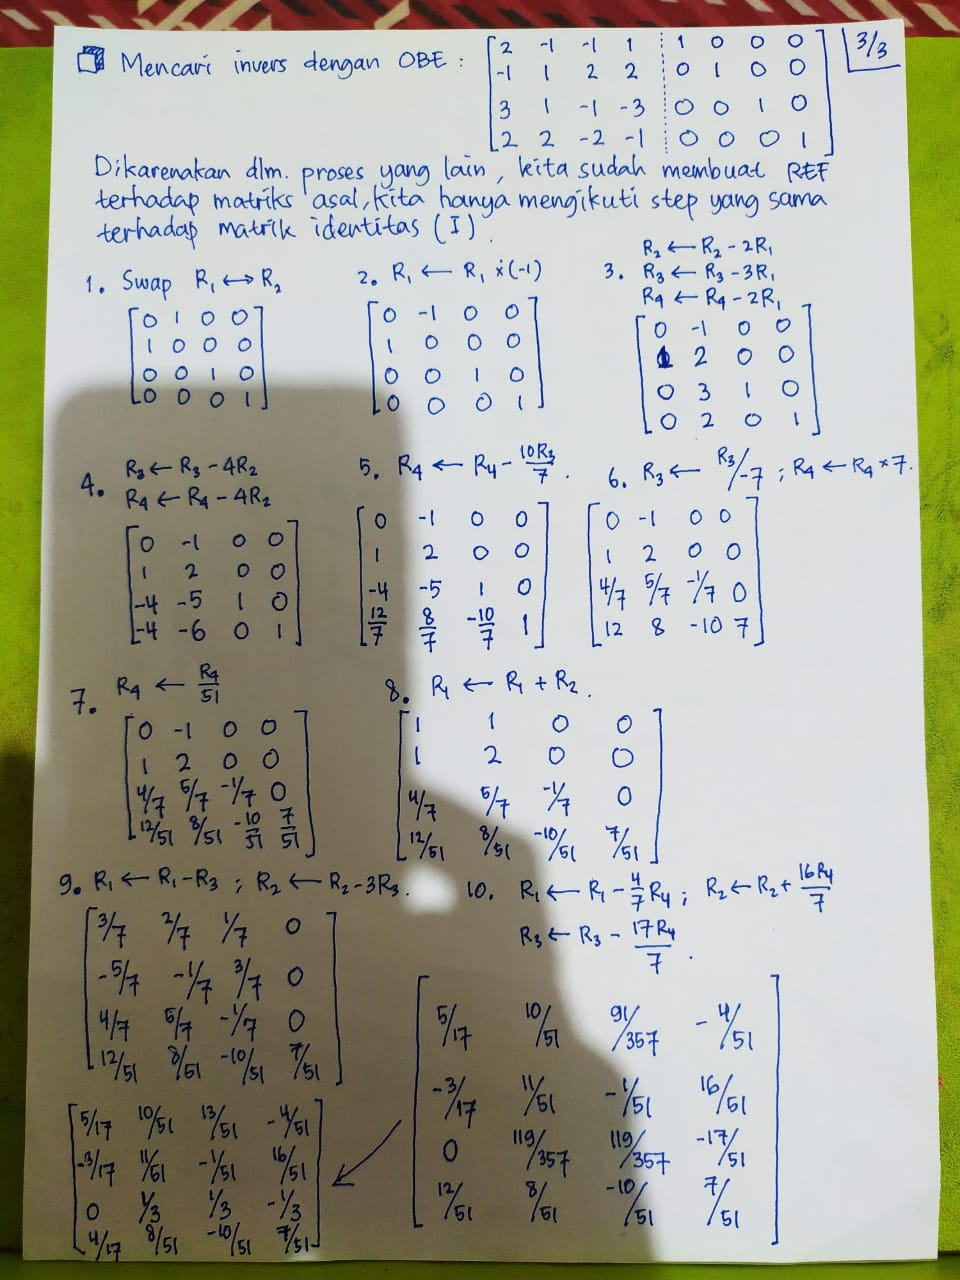 Mencari invers dengan OBE : [ 2 -1 -1 1 | 1 0 0 0 ] 3/3
[ -1 1 2 2 | 0 1 0 0 ]
[ 3 1 -1 -3 | 0 0 1 0 ]
[ 2 2 -2 -1 | 0 0 0 1 ]
Dikarenakan dlm. proses yang lain, kita sudah membuat REF
terhadap matriks asal, kita hanya mengikuti step yang sama
terhadap matrik identitas (I).
1. Swap R₁ ↔ R₂
[ 0 1 0 0 ]
[ 1 0 0 0 ]
[ 0 0 1 0 ]
[ 0 0 0 1 ]
2. R₁ ← R₁ × (-1)
[ 0 -1 0 0 ]
[ 1 0 0 0 ]
[ 0 0 1 0 ]
[ 0 0 0 1 ]
R₂ ← R₂ - 2R₁
3. R₃ ← R₃ - 3R₁
R₄ ← R₄ - 2R₁
[ 0 -1 0 0 ]
[ 1 2 0 0 ]
[ 0 3 1 0 ]
[ 0 2 0 1 ]
4. R₃ ← R₃ - 4R₂
R₄ ← R₄ - 4R₂
[ 0 -1 0 0 ]
[ 1 2 0 0 ]
[ -4 -5 1 0 ]
[ -4 -6 0 1 ]
5. R₄ ← R₄ - 10R₃/7.
[ 0 -1 0 0 ]
[ 1 2 0 0 ]
[ -4 -5 1 0 ]
[ 12/7 8/7 -10/7 1 ]
6. R₃ ← R₃/-7 ; R₄ ← R₄ * 7.
[ 0 -1 0 0 ]
[ 1 2 0 0 ]
[ 4/7 5/7 -1/7 0 ]
[ 12 8 -10 7 ]
7. R₄ ← R₄/51
[ 0 -1 0 0 ]
[ 1 2 0 0 ]
[ 4/7 5/7 -1/7 0 ]
[ 12/51 8/51 -10/51 7/51 ]
8. R₁ ← R₁ + R₂.
[ 1 1 0 0 ]
[ 1 2 0 0 ]
[ 4/7 5/7 -1/7 0 ]
[ 12/51 8/51 -10/51 7/51 ]
9. R₁ ← R₁ - R₃ ; R₂ ← R₂ - 3R₃.
[ 3/7 2/7 1/7 0 ]
[ -5/7 -1/7 3/7 0 ]
[ 4/7 5/7 -1/7 0 ]
[ 12/51 8/51 -10/51 7/51 ]
10. R₁ ← R₁ - 4/7 R₄ ; R₂ ← R₂ + 16R₄/7
R₃ ← R₃ - 17R₄/7.
[ 5/17 10/51 91/357 -4/51 ]
[ -3/17 11/51 -1/51 16/51 ]
[ 0 119/357 119/357 -17/51 ]
[ 12/51 8/51 -10/51 7/51 ]
[ 5/17 10/51 13/51 -4/51 ]
[ -3/17 11/51 -1/51 16/51 ]
[ 0 1/3 1/3 -1/3 ]
[ 4/17 8/51 -10/51 7/51 ]